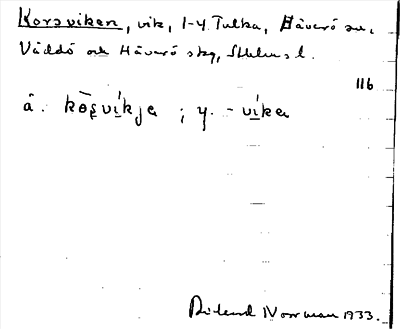 Korsviken, vik, 1-4 Tulka, Häverö sn,
Väddö och Häverö skg, Sthlms l.
116
å. kōs̨vík̨ja ; y. -víka
Rolend Norrman 1933.